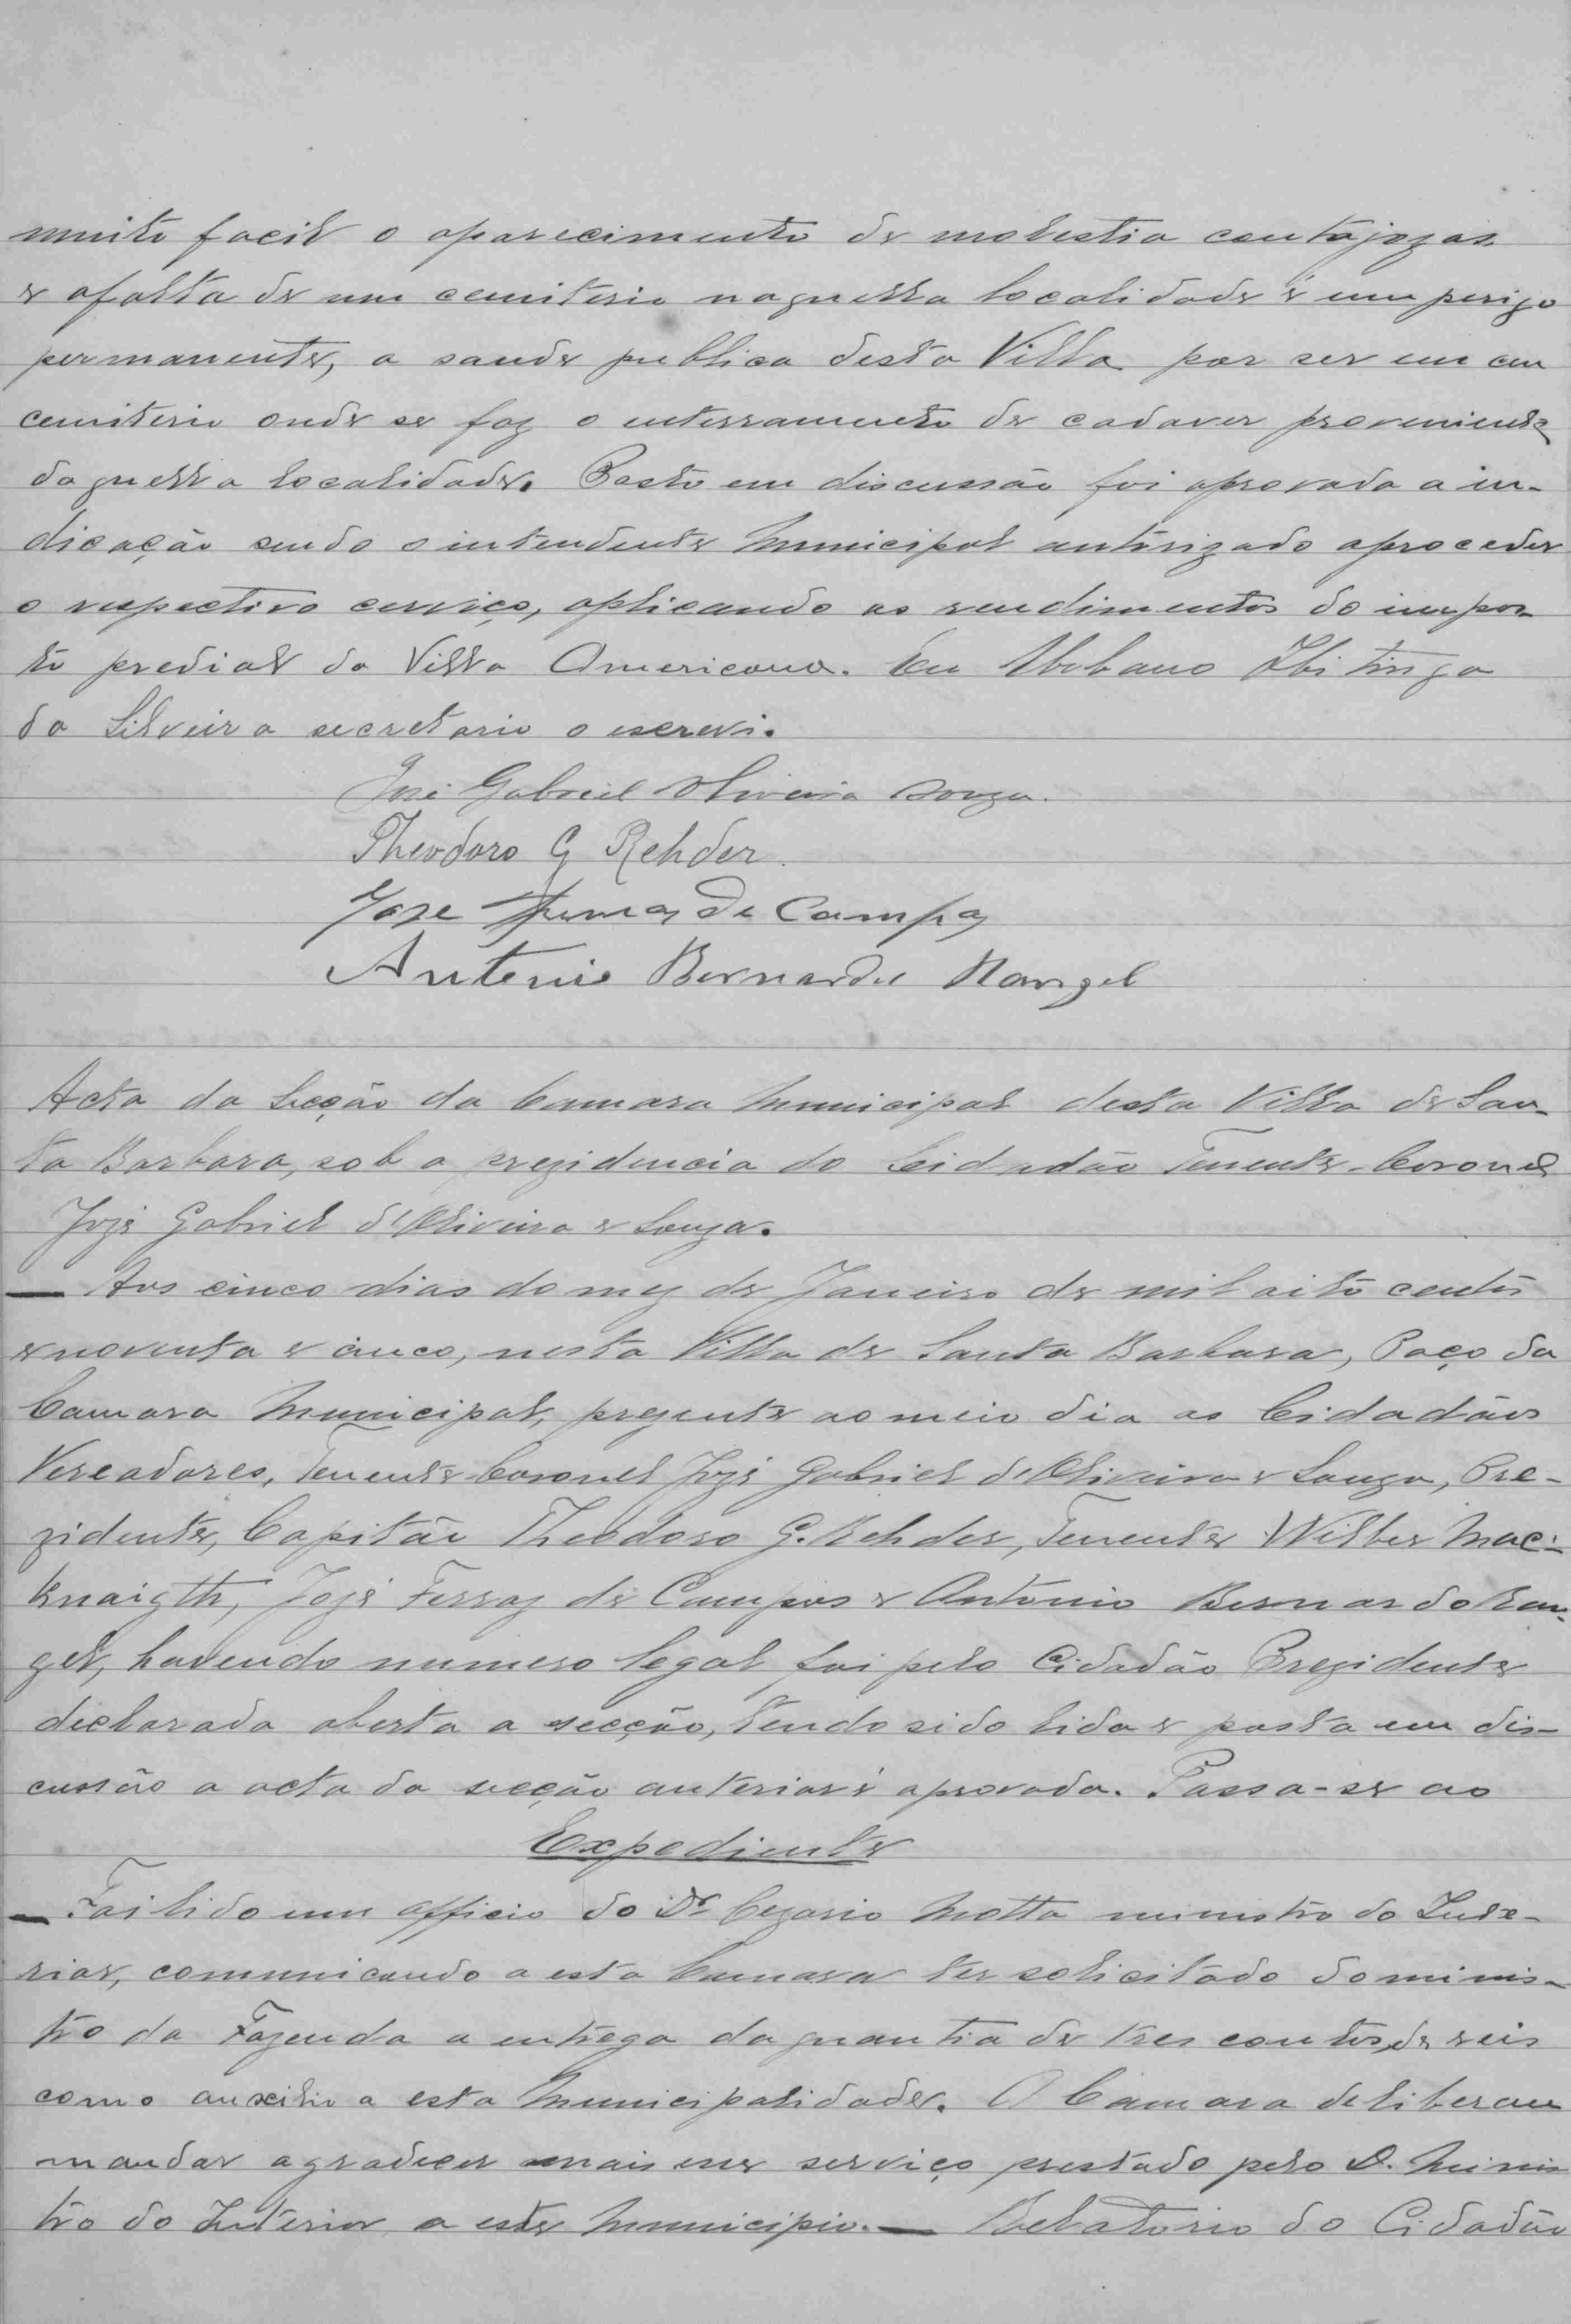 muito facil o aparecimento de molestia contajozas
e afalta de um cemiterio naquella localidade é um perigo
permanente, a saude publica desta Villa por ser em
cemiterio onde se faz o enterramento de cadaver proveniente
daquella localidade. Posto em discussão foi aprovada a in-
dicação sendo o intendente Municipal autorizado aproceder
o respectivo cerviço, aplicando as rendimentos do impos-
to predial da Villa Americana. Eu Urbano Ibitinga
da Silveira secretario o escrevi.
José Gabriel Oliveira Souza.
Theodoro G Rehder.
Jose de Campos
Antonio Bernardes Rangel
Acta da Secção da Camara Municipal desta Villa de San-
ta Barbara, sob a prezidencia do Cidadão Tenente-Coronel
Jozé Gabriel d'Oliveira e Souza.
— Aos cinco dias do mez de Janeiro de mil oito centos
e noventa e cinco, nesta Villa de Santa Barbara, Paço da
Camara Municipal, prezente ao meio dia os Cidadãos
Vereadores, Tenente Coronel Jozé Gabriel d'Oliveira e Souza, Pre-
zidente, Capitão Theodoro G. Rehder, Tenente Wilber Mac-
Knaigth, Jozé Ferraz de Campos e Antonio Bernardo Ran-
gel, havendo numero legal foi pelo Cidadão Prezidente
declarada aberta a secção, tendo sido lida e posta em dis-
cussão a acta da secção anterior é aprovada. Passa-se ao
Expediente
— Foi lido um officio do Dr Cezario Motta ministro do Inte-
rior, comunicando a esta Camara ter solicitado do minis-
tro da Fazenda a entrega da quantia de tres contos de reis
como auxilio a esta Municipalidade. A Camara deliberou
mandar agradecer mais esse serviço prestado pelo D. Minis
tro do Interior a este Municipio. — Relatorio do Cidadão